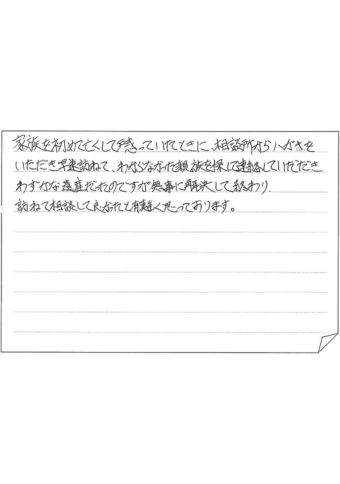 家族を初めて亡くして手惑っていたときに、相談所からハガキを
いただき早速訪ねて、わからなかった親族を探して連絡していただき
わずかな遺産だったのですが無事に解決して終わり
訪ねて相談して良かったと有難く思っております。